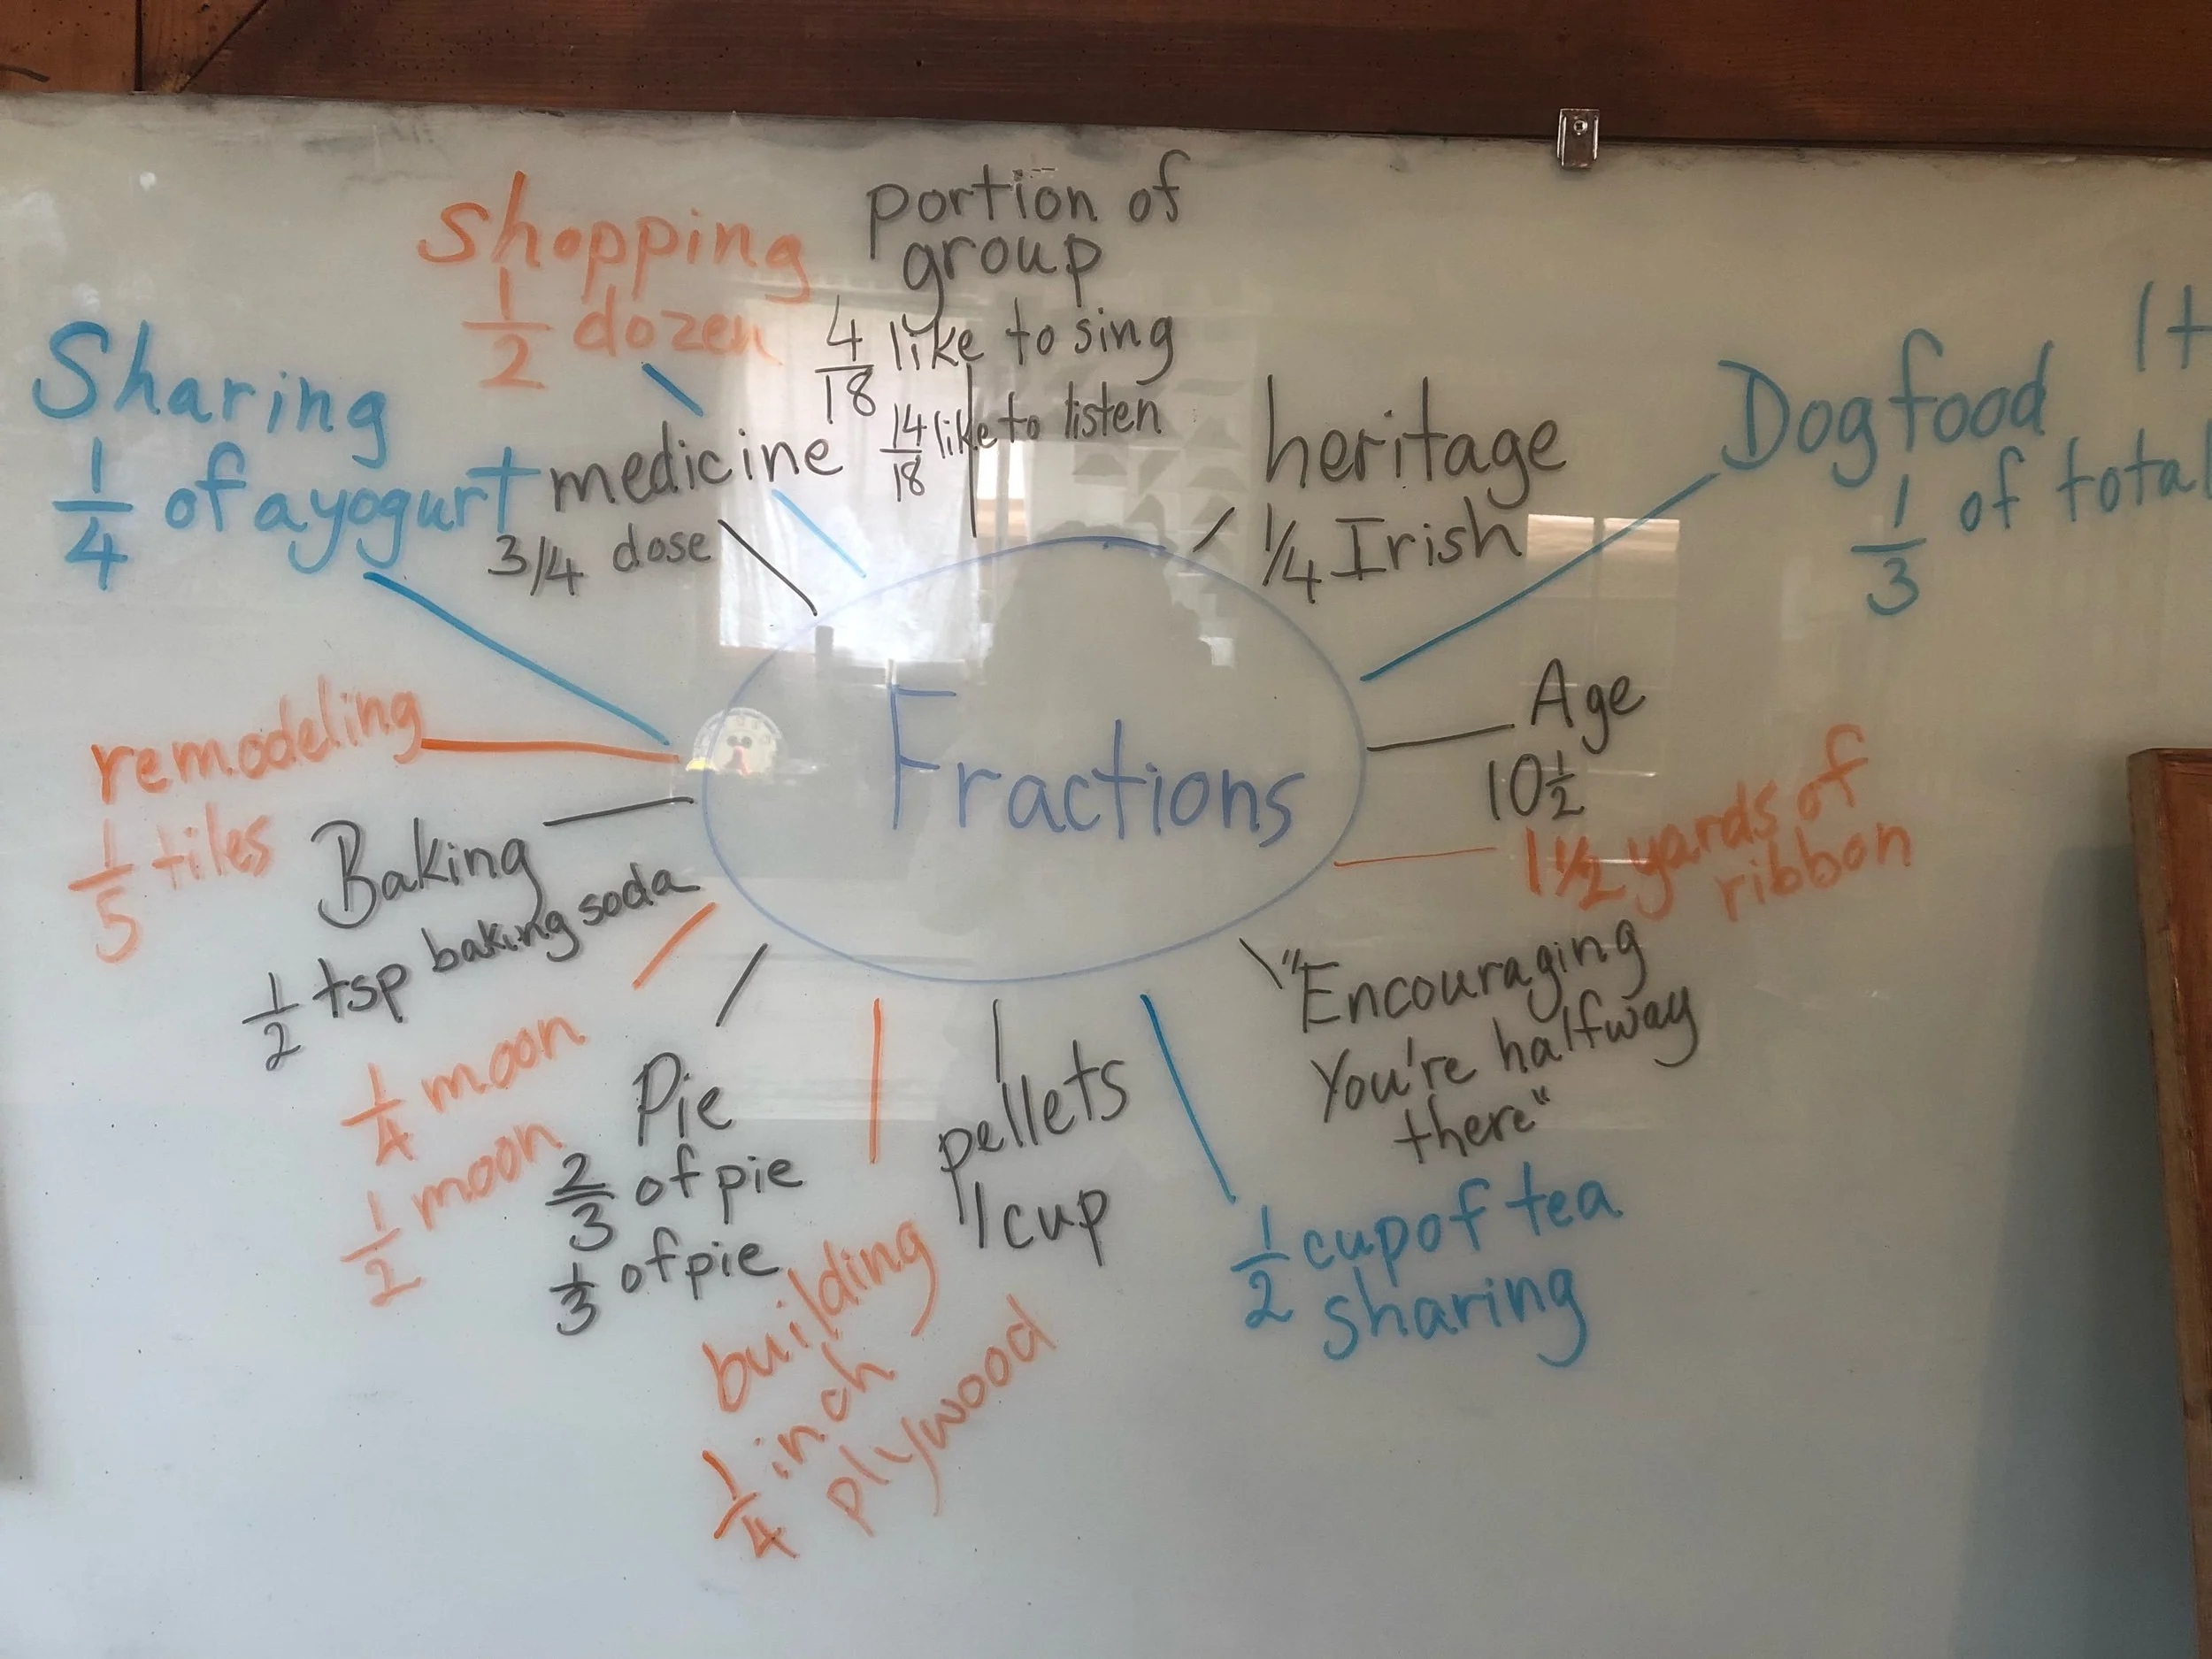 Shopping
1/2 dozen
portion of
group
4/18 like to sing
14/18 like to listen
Sharing
1/4 of a yogurt
medicine
3/4 dose
heritage
1/4 Irish
Dog food
1/3 of total
Fractions
remodeling
1/5 tiles
Baking
1/2 tsp baking soda
Age
10 1/2
1 1/2 yards of
ribbon
"Encouraging
You're halfway
there"
1/4 moon
1/2 moon
Pie
2/3 of pie
1/3 of pie
building
1/4 inch
plywood
pellets
cup
1/2 cup of tea
sharing